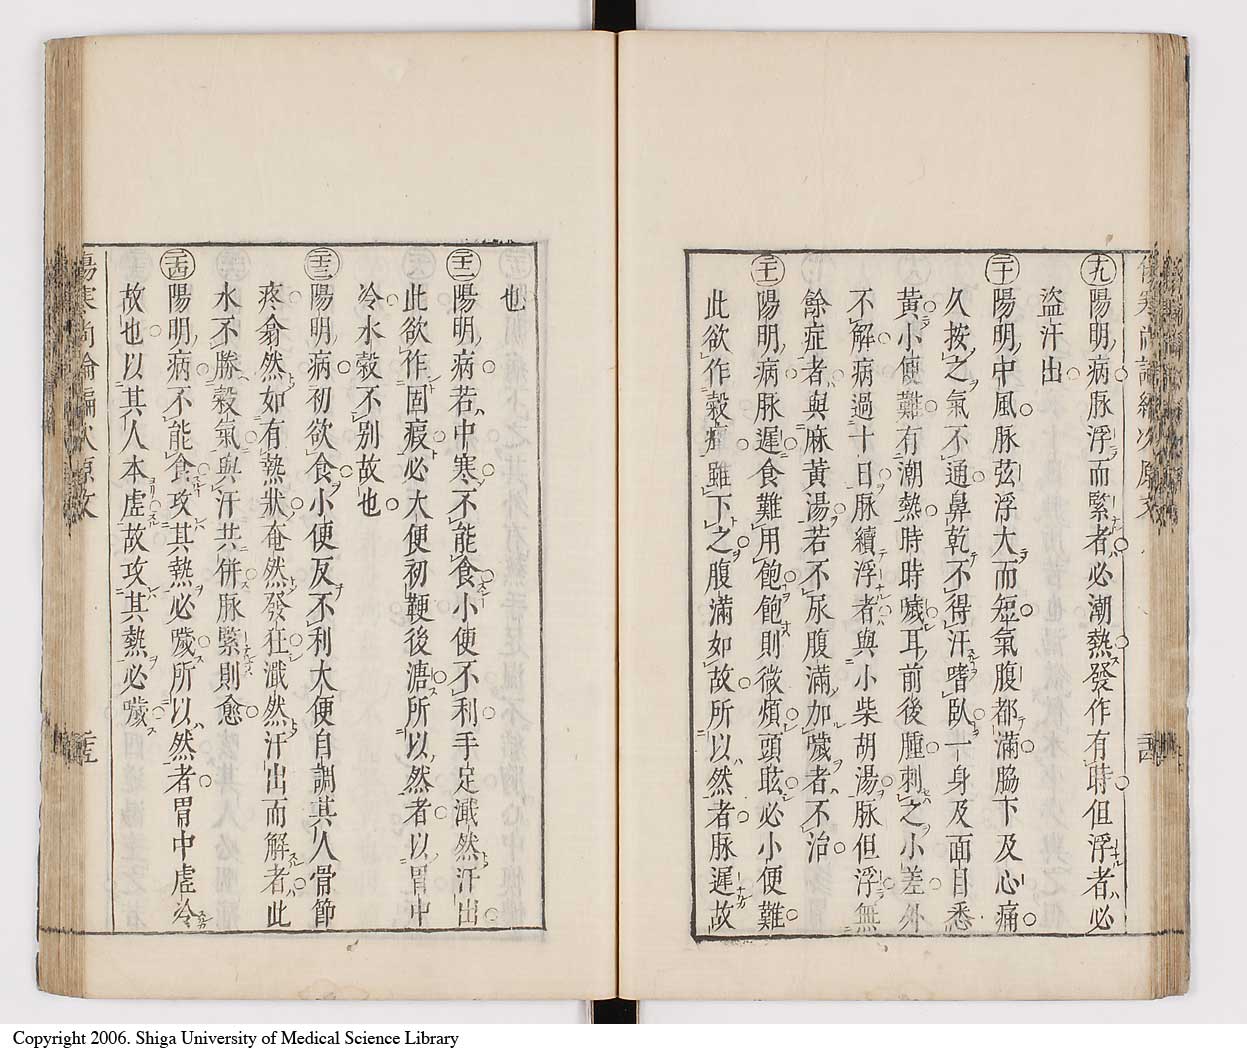 十九 陽明病脉浮而緊者必潮熱發作有時但浮者必
盜汗出
二十 陽明中風脉弦浮大而短氣腹都滿脇下及心痛
久按之氣不通鼻乾不得汗嗜臥一身及面目悉
黃小便難有潮熱時時噦耳前後腫刺之小差外
不解病過十日脉續浮者與小柴胡湯脉但浮無
餘症者與麻黃湯若不尿腹滿加噦者不治
二十一 陽明病脉遲食難用飽飽則微煩頭眩必小便難
此欲作穀疸雖下之腹滿如故所以然者脉遲故
也
二十二 陽明病若中寒不能食小便不利手足濈然汗出
此欲作固瘕必大便初鞕後溏所以然者以胃中
冷水穀不別故也
二十三 陽明病初欲食小便反不利大便自調其人骨節
疼翕然如有熱狀奄然發狂濈然汗出而解者此
水不勝穀氣與汗共併脉緊則愈
二十四 陽明病不能食攻其熱必噦所以然者胃中虛冷
故也以其人本虛故攻其熱必噦
Copyright 2006. Shiga University of Medical Science Library